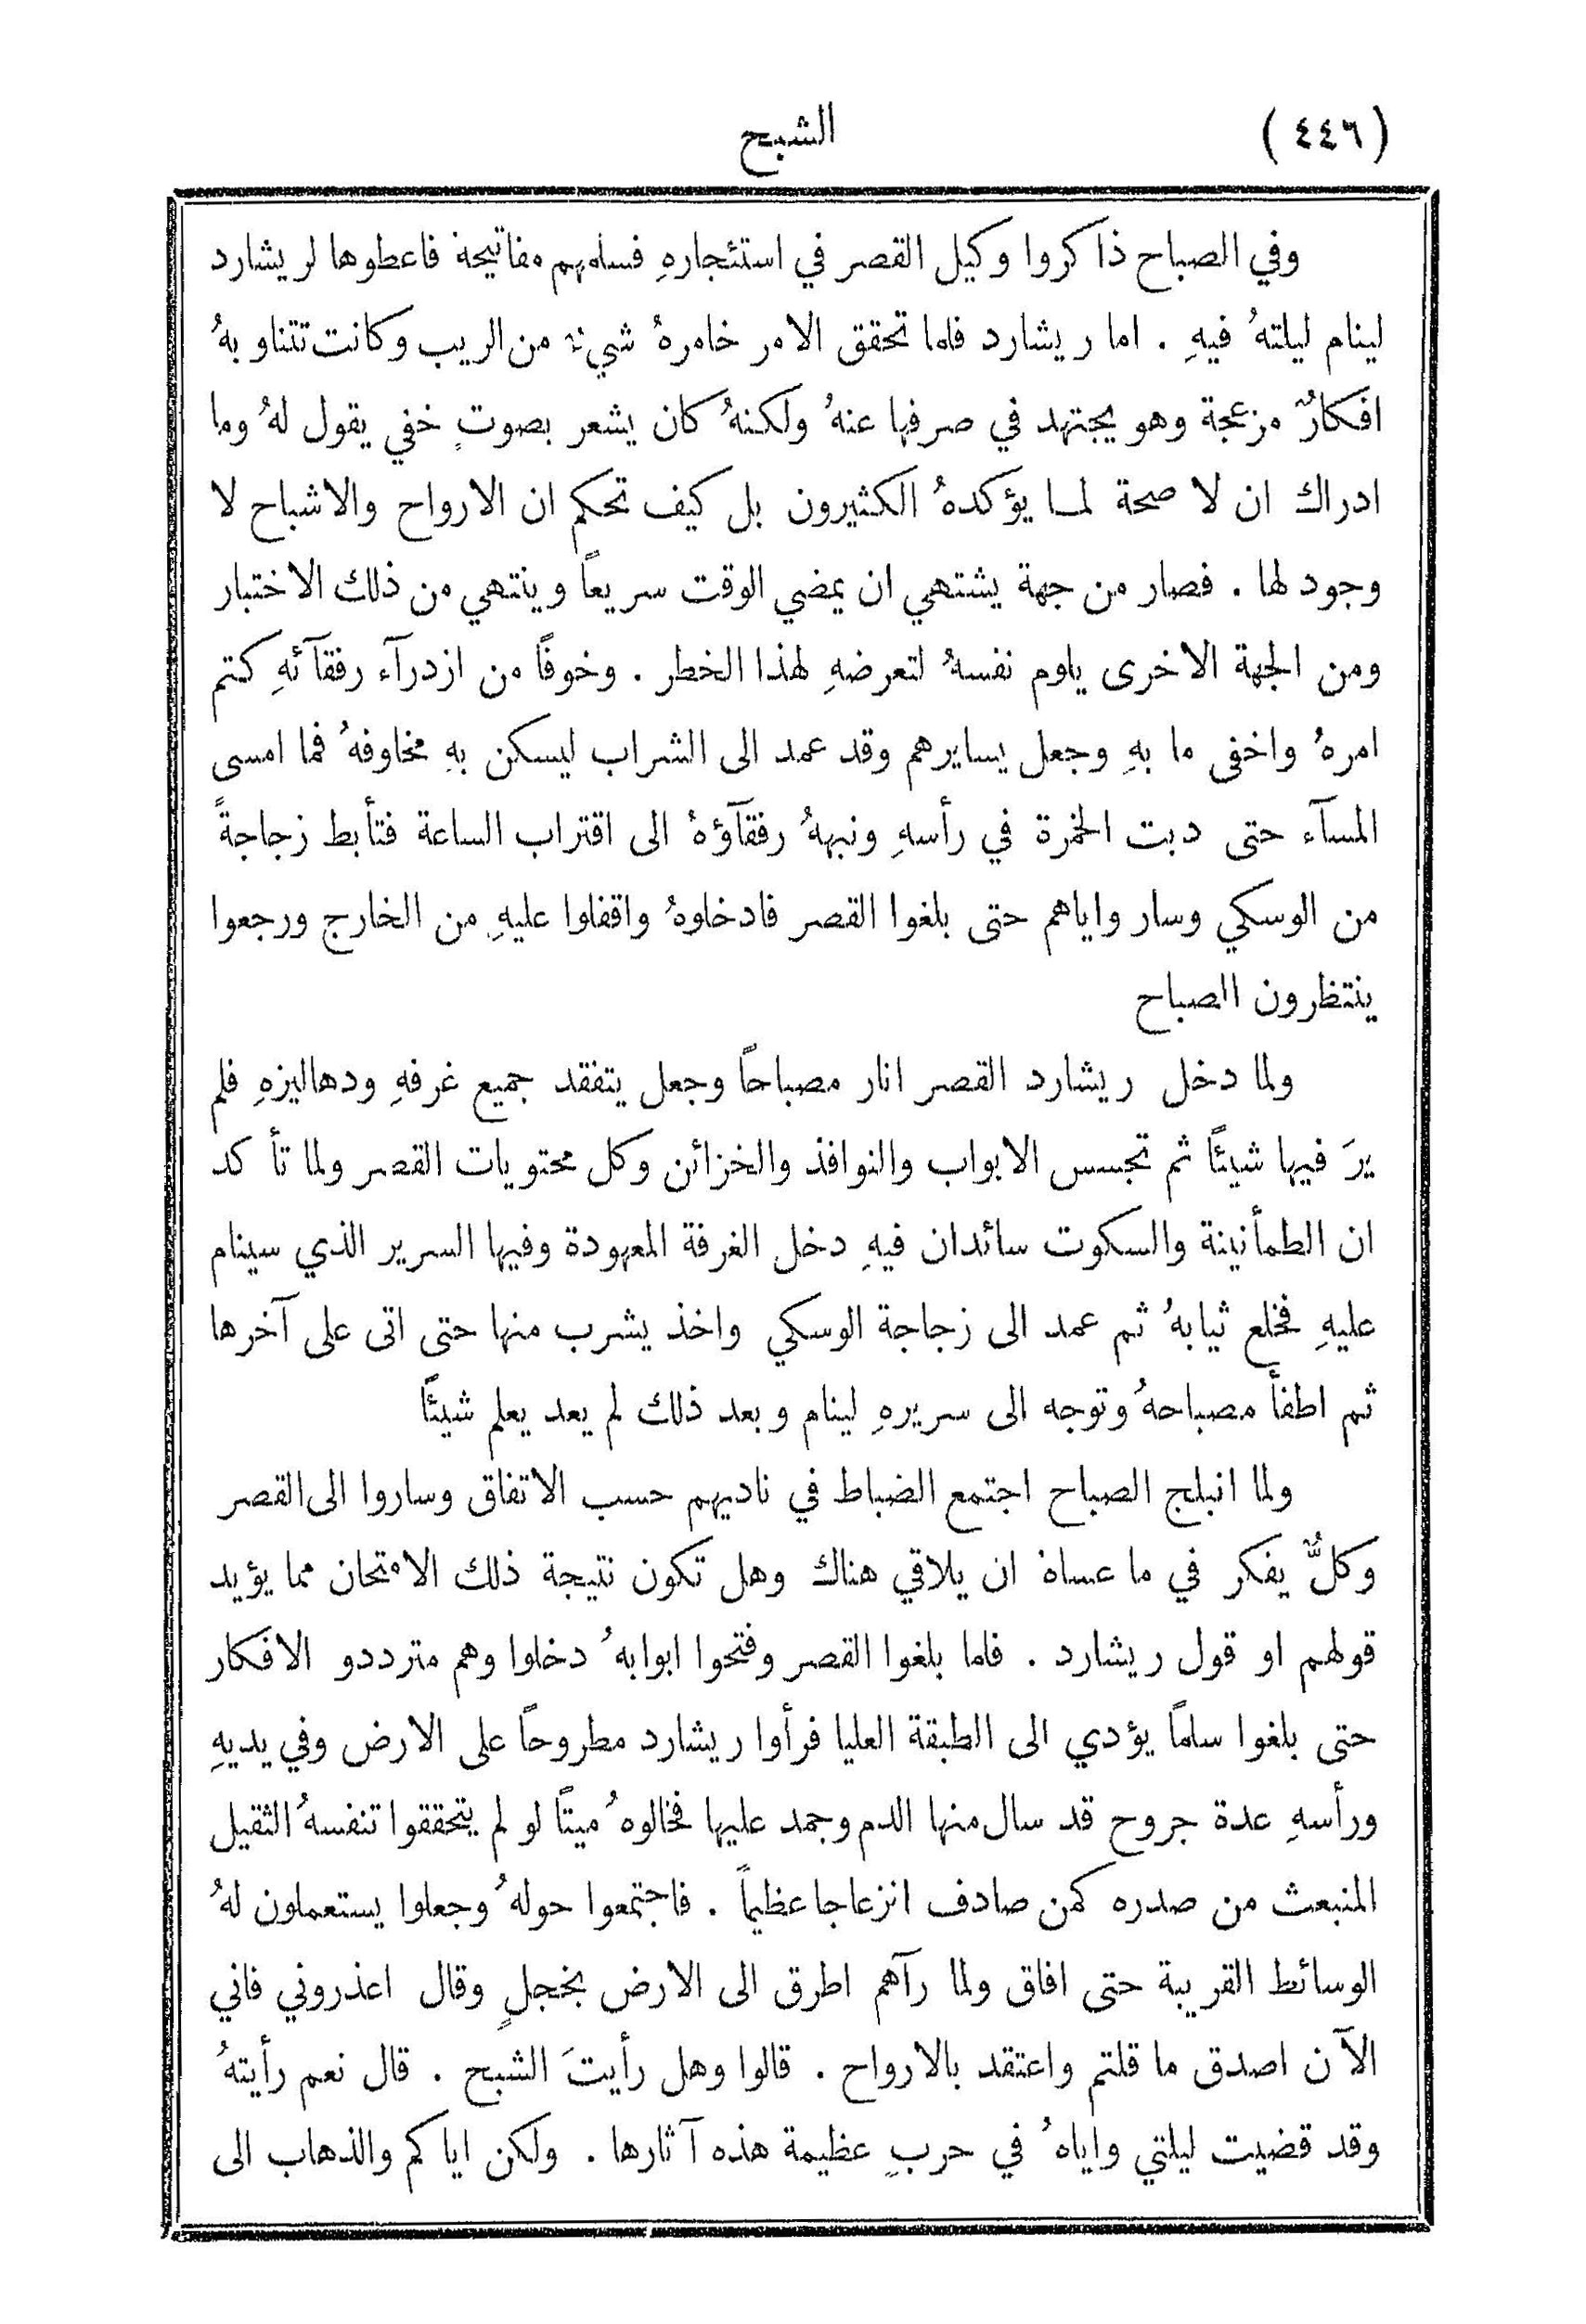 (٤٤٦) الشبح
وفي الصباح ذاكروا وكيل القصر في استئجارهِ فسلمهم مفاتيحهُ فاعطوها لريشارد
لينام ليلتهُ فيهِ . اما ريشارد فلما تحقق الامر خامرهُ شيءٌ من الريب وكانت تتناوبهُ
افكارٌ مزعجة وهو يجتهد في صرفها عنهُ ولكنهُ كان يشعر بصوتٍ خفي يقول لهُ وما
ادراك ان لا صحة لما يؤكدهُ الكثيرون بل كيف تحكم ان الارواح والاشباح لا
وجود لها . فصار من جهة يشتهي ان يمضي الوقت سريعاً وينتهي من ذلك الاختبار
ومن الجهة الاخرى يلوم نفسهُ لتعرضهِ لهذا الخطر . وخوفاً من ازدرآء رفقآئهِ كتم
امرهُ واخفى ما بهِ وجعل يسايرهم وقد عمد الى الشراب ليسكن بهِ مخاوفهُ فما امسى
المسآء حتى دبت الخمرة في رأسهِ ونبههُ رفقآؤهُ الى اقتراب الساعة فتأبط زجاجةً
من الوسكي وسار واياهم حتى بلغوا القصر فادخلوهُ واقفلوا عليهِ من الخارج ورجعوا
ينتظرون الصباح
ولما دخل ريشارد القصر انار مصباحاً وجعل يتفقد جميع غرفهِ ودهاليزهِ فلم
يرَ فيها شيئاً ثم تجسس الابواب والنوافذ والخزائن وكل محتويات القصر ولما تأكد
ان الطمأنينة والسكوت سائدان فيهِ دخل الغرفة المعهودة وفيها السرير الذي سينام
عليهِ فخلع ثيابهُ ثم عمد الى زجاجة الوسكي واخذ يشرب منها حتى اتى على آخرها
ثم اطفأ مصباحهُ وتوجه الى سريرهِ لينام وبعد ذلك لم يعد يعلم شيئاً
ولما انبلج الصباح اجتمع الضباط في ناديهم حسب الاتفاق وساروا الى القصر
وكلٌّ يفكر في ما عساهُ ان يلاقي هناك وهل تكون نتيجة ذلك الامتحان مما يؤيد
قولهم او قول ريشارد . فلما بلغوا القصر وفتحوا ابوابهُ دخلوا وهم مترددو الافكار
حتى بلغوا سلماً يؤدي الى الطبقة العليا فرأوا ريشارد مطروحاً على الارض وفي يديهِ
ورأسهِ عدة جروح قد سال منها الدم وجمد عليها فخالوهُ ميتاً لو لم يتحققوا تنفسهُ الثقيل
المنبعث من صدره كمن صادف انزعاجا عظيماً . فاجتمعوا حولهُ وجعلوا يستعملون لهُ
الوسائط القريبة حتى افاق ولما رآهم اطرق الى الارض بخجلٍ وقال اعذروني فاني
الآن اصدق ما قلتم واعتقد بالارواح . قالوا وهل رأيتَ الشبح . قال نعم رأيتهُ
وقد قضيت ليلتي واياهُ في حربٍ عظيمة هذه آثارها . ولكن اياكم والذهاب الى